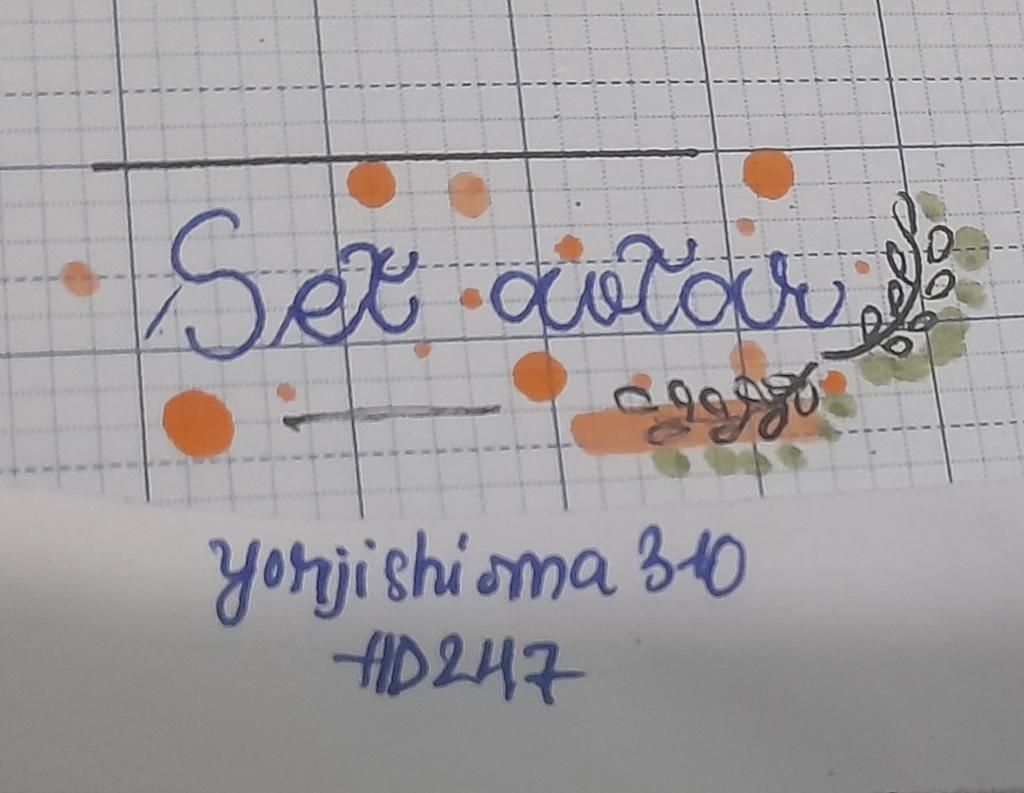 Set avtar
yonjishioma 310
HD247